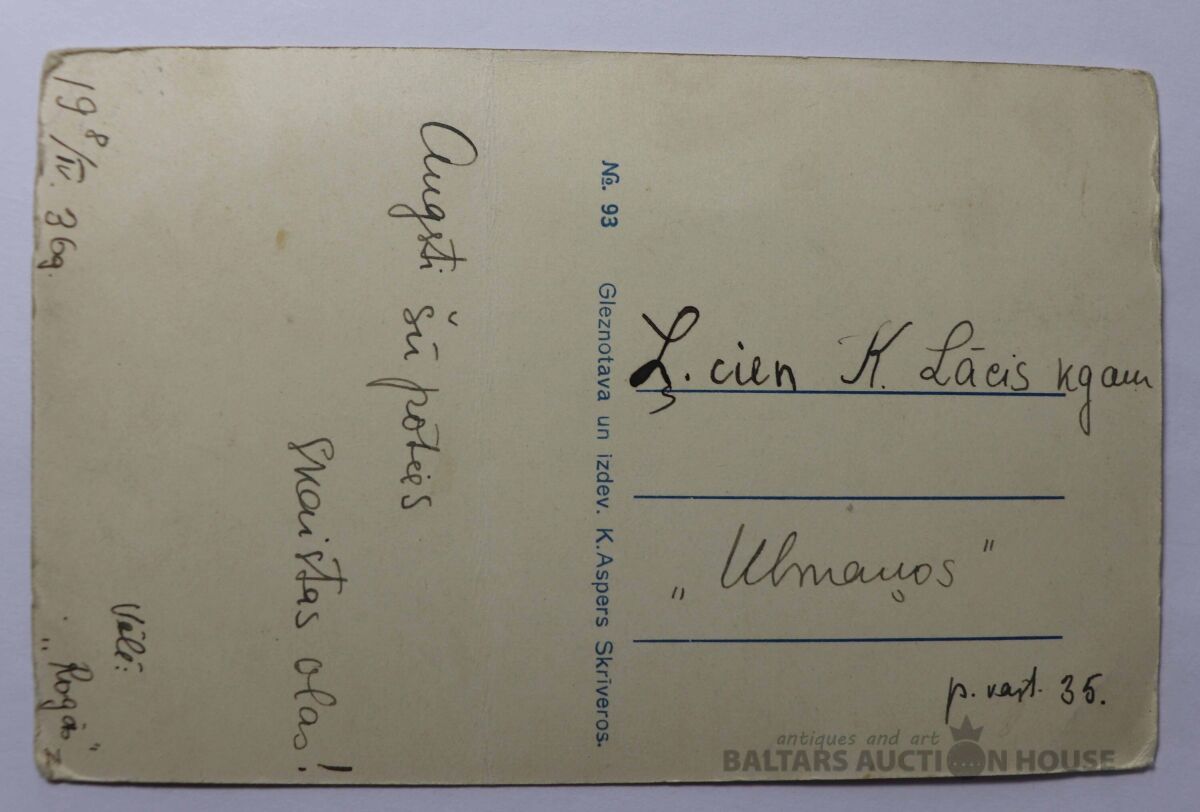 19 8/IV. 36g.
Augsti šūpoties
skaistas olas!
Vēlē:
„Rogās”
№. 93 Gleznotava un izdev. K. Aspers Skrīveros.
Ļ. cien K. Lācis kgam
„Ulmaņos”
p. vast. 35.
antiques and art
BALTARS AUCTION HOUSE